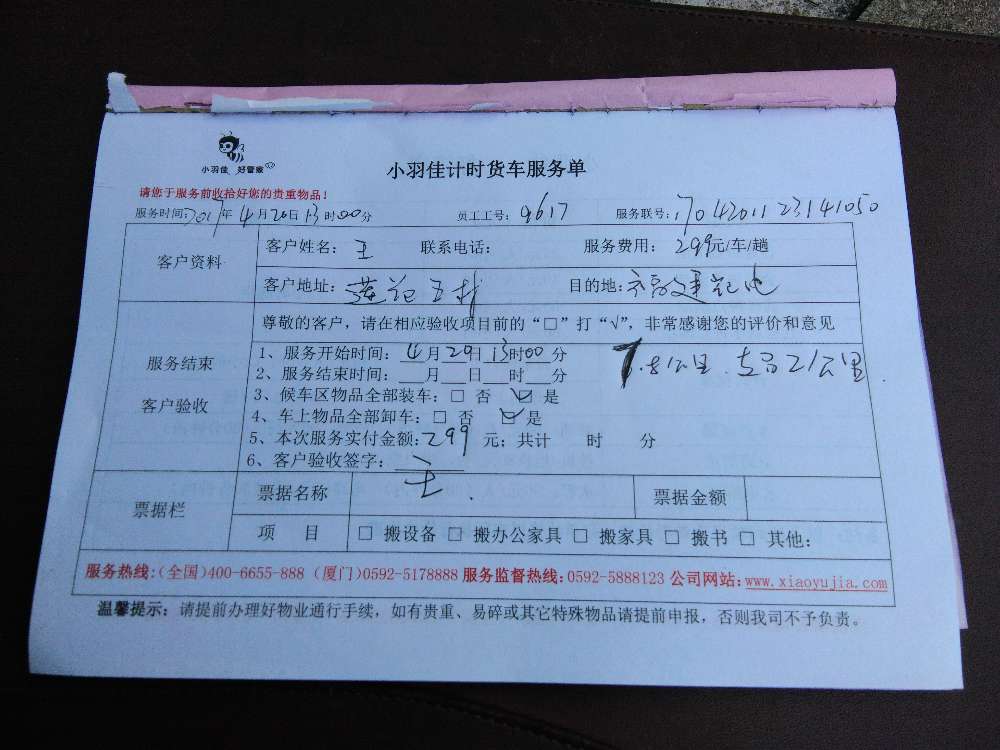 小羽佳 好管家
小羽佳计时货车服务单
请您于服务前收拾好您的贵重物品！
服务时间：2017年4月20日13时00分 员工工号：9617 服务联号：1704201123141050
客户资料 客户姓名：王 联系电话： 服务费用：299元/车/趟
客户地址： 目的地：
尊敬的客户，请在相应验收项目前的“□”打“√”，非常感谢您的评价和意见
服务结束
客户验收
1、服务开始时间：4月20日13时00分
2、服务结束时间：___月___日___时___分
公里 21公里
3、候车区物品全部装车：□ 否 ☑ 是
4、车上物品全部卸车：□ 否 ☑ 是
5、本次服务实付金额：299 元；共计 时 分
6、客户验收签字：王
票据栏 票据名称 票据金额
项 目 □ 搬设备 □ 搬办公家具 □ 搬家具 □ 搬书 □ 其他：
服务热线：(全国)400-6655-888 (厦门)0592-5178888 服务监督热线：0592-5888123 公司网站：www.xiaoyujia.com
温馨提示：请提前办理好物业通行手续，如有贵重、易碎或其它特殊物品请提前申报，否则我司不予负责。